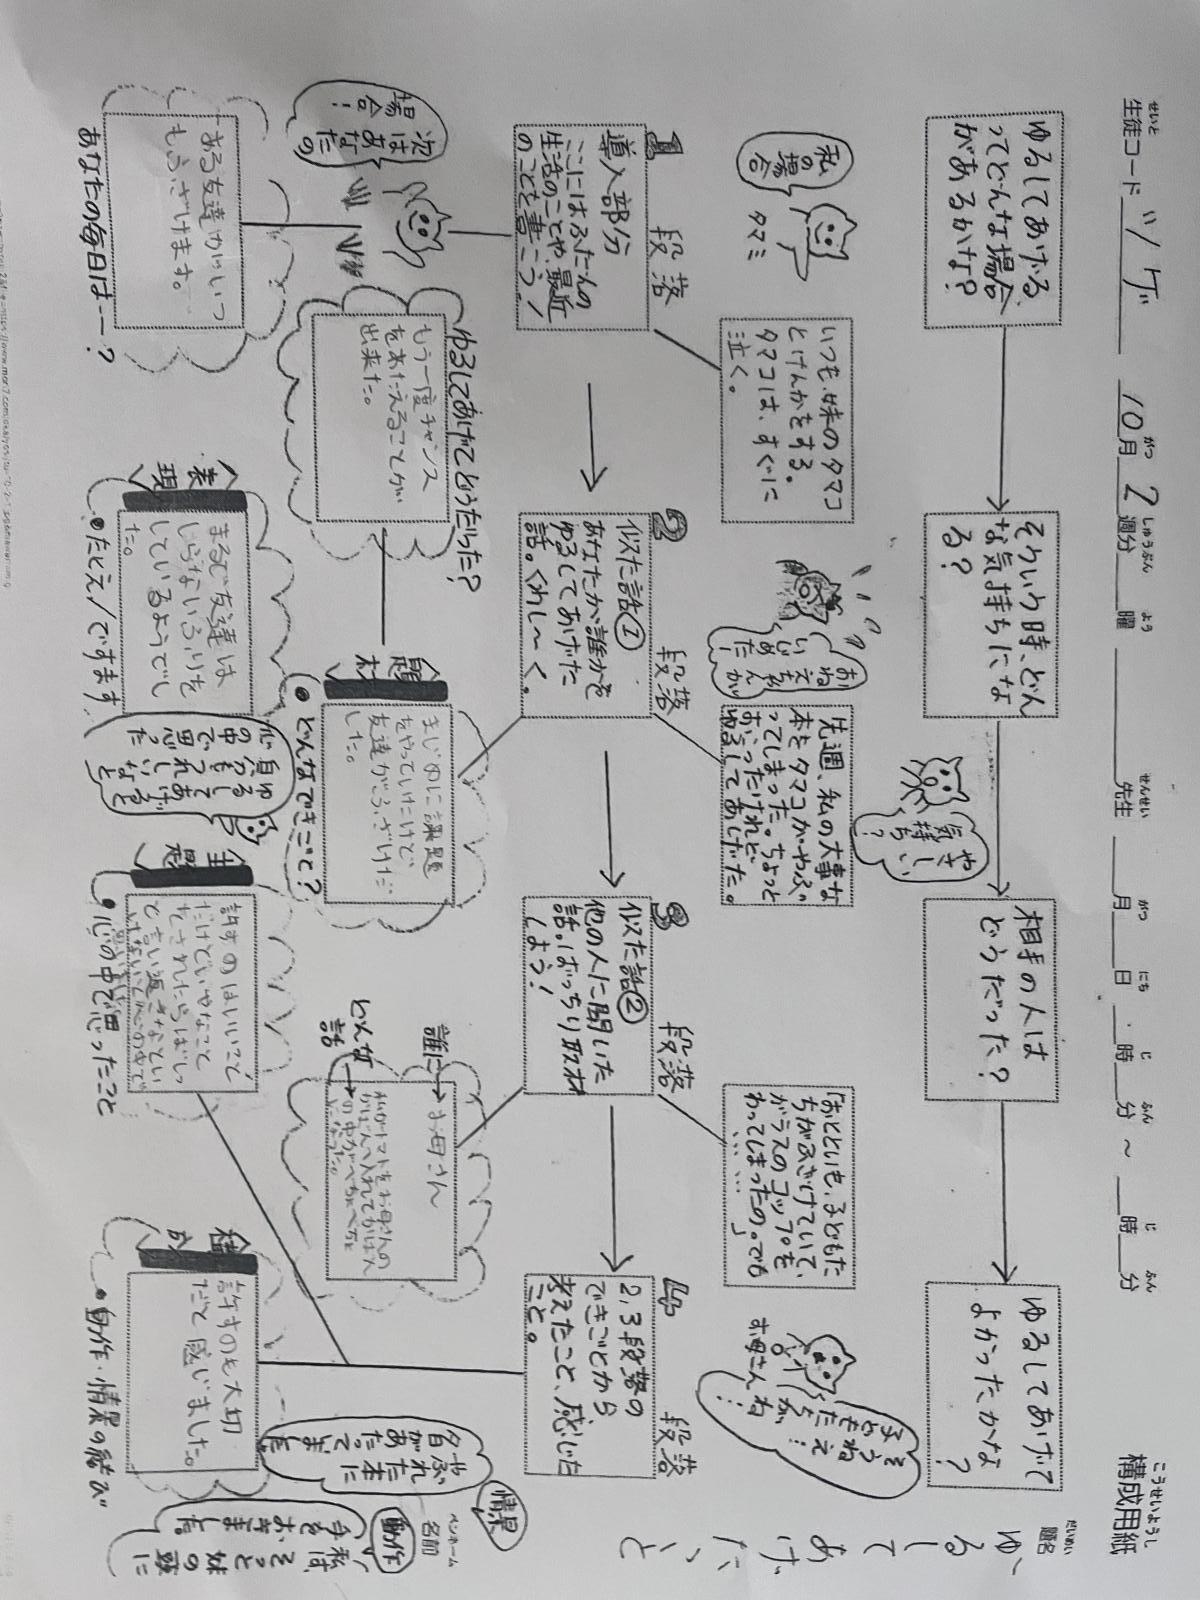 構成用紙
こうせいようし
生徒コード い/ゲ 10月 2週分 曜 先生 月 日・ 時 分～ 時 分
せいと がつ しゅうぶん よう せんせい がつ にち じ ふん じ ふん
題名
だいめい
ゆるして
あげたいと
ゆるしてあげる、
ってどんな場合
があるかな?
そういう時、どん
な気持ちにな
る?
相手の人は
どうだった?
ゆるしてあげて
よかったかな
?
私の
場合
タマミ
やさしい
気持ち?
いつも、妹のタマコ
とけんかをする。
タマコは、すぐに
泣く。
先週、私の大事な
本をタマコがやぶ
ってしまった。ちょっと
おこったけれど、
ゆるしてあげた。
「おとといも、子どもた
ちがふざけていて、
ガラスのコップを
わってしまったの。でも
……」
おねえちゃんが
いじめた
そうねえ
子どもたち
がね…
お母さん
1
段落
導入部分
ここにはふだんの
生活のことや、最近
のことを書こう!
2
段落
似た話①
あなたが誰かを
ゆるしてあげた
話。くわし~く。
3
段落
似た話②
他の人に聞いた
話。ばっちり取材
しよう!
4
段落
2,3段落の
できごとから
考えたこと、感じた
こと。
次はあなたの
場合!
ゆるしてあげてどうだった?
もう一度チャンス
をあたえることが
出来た。
題材
まじめに課題
をやっていたけど、
友達がふざけだ
した。
●どんなできごと?
誰に→お母さん
どんな話→私がトマトをお母さんの
かばんへ入れてかばん
の中がべちゃべちゃ
になった。
あなたの毎日は…?
ある友達がいつ
もふざけます。
表現
まるで友達は
しらないふりを
しているようでし
た。
●たとえ/ですます
主題
許すのはいいこと
だけどいやなこと
をされたらばしっ
と言い返さないと
いけないと心の中で
思いました。
●心の中で思ったこと
構成
許すのも大切
だと感じました。
●動作・情景の結び
情景
動作
ペンネーム
名前
やぶれた本に
夕日が
あたってました。
私は、
そっと妹の頭に
手をおきました。